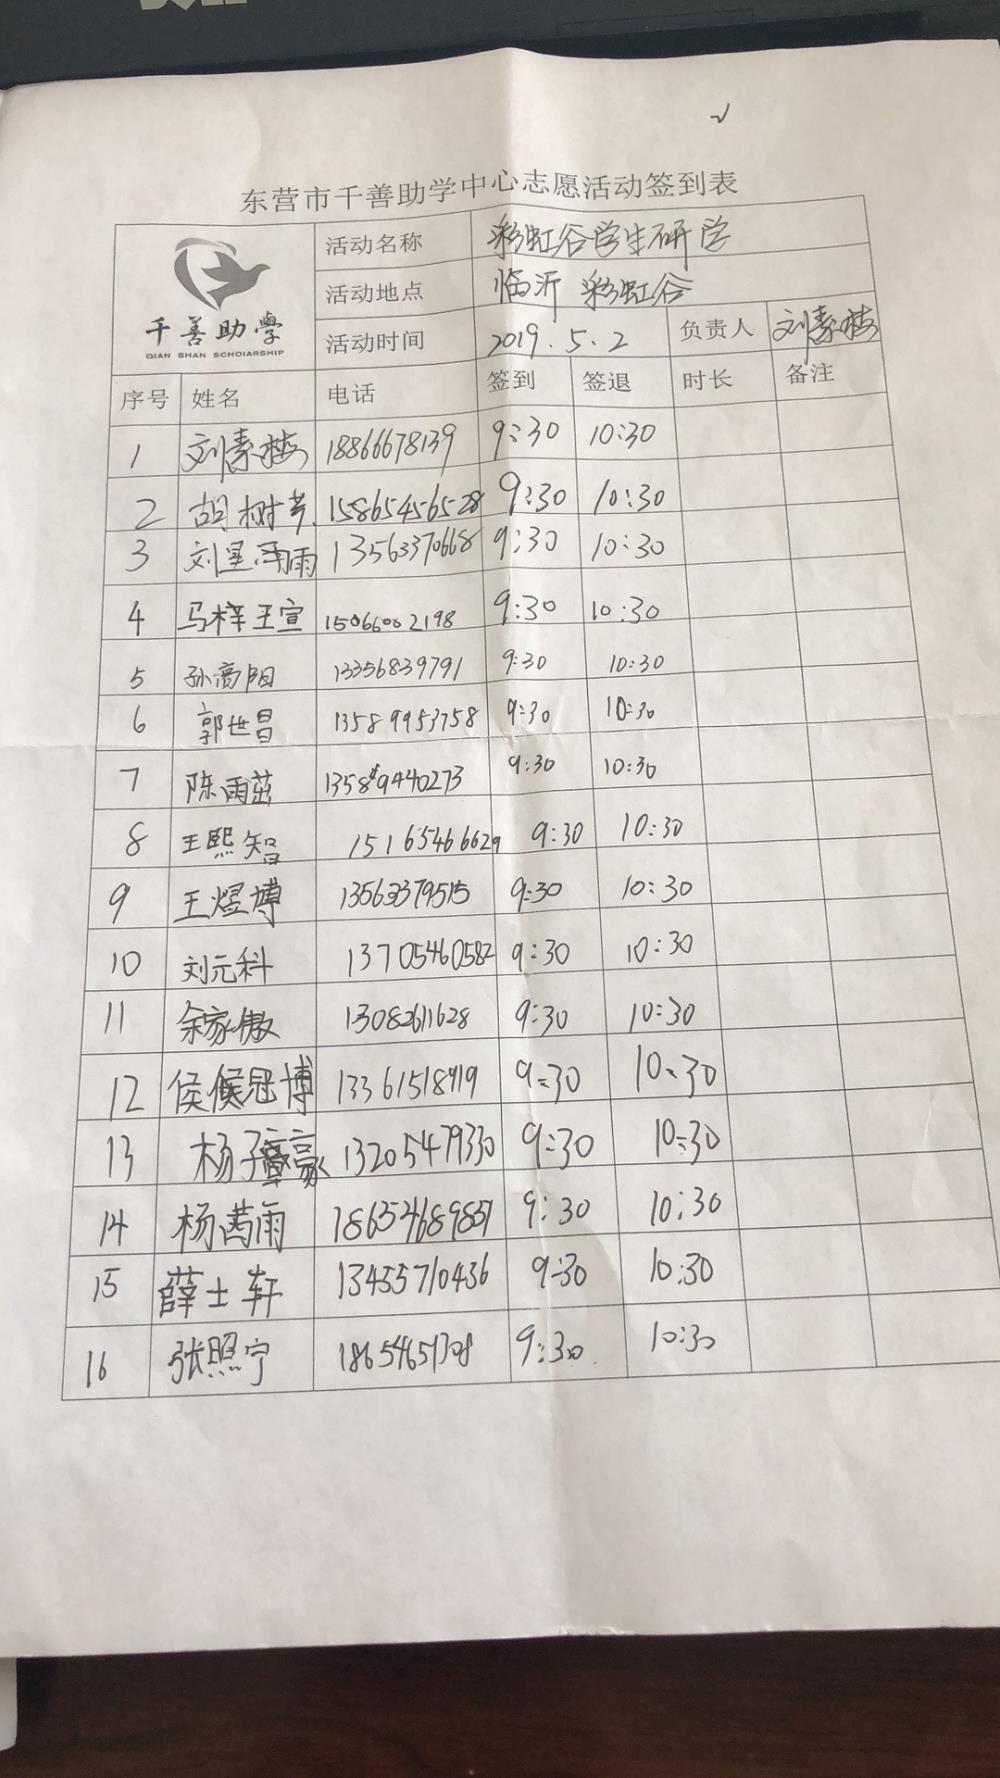 东营市千善助学中心志愿活动签到表
千善助学
QIAN SHAN SCHOIARSHIP
活动名称 彩虹谷学生研学
活动地点 临沂 彩虹谷
活动时间 2019.5.2 负责人 刘素梅
序号 姓名 电话 签到 签退 时长 备注
1 刘素梅 18866678139 9:30 10:30
2 胡树芳 15865456528 9:30 10:30
3 刘星雨 13563370668 9:30 10:30
4 马梓宣 15066002198 9:30 10:30
5 孙高阳 13356839791 9:30 10:30
6 郭世昌 13589953758 9:30 10:30
7 陈雨茲 13589440273 9:30 10:30
8 王熙智 15165466629 9:30 10:30
9 王煜博 13563379515 9:30 10:30
10 刘元科 13705460582 9:30 10:30
11 余家傲 13082611628 9:30 10:30
12 侯冠博 13361518919 9:30 10:30
13 杨子豪 13205479330 9:30 10:30
14 杨茜雨 18654689851 9:30 10:30
15 薛士轩 13455710436 9:30 10:30
16 张照宁 9:30 10:30